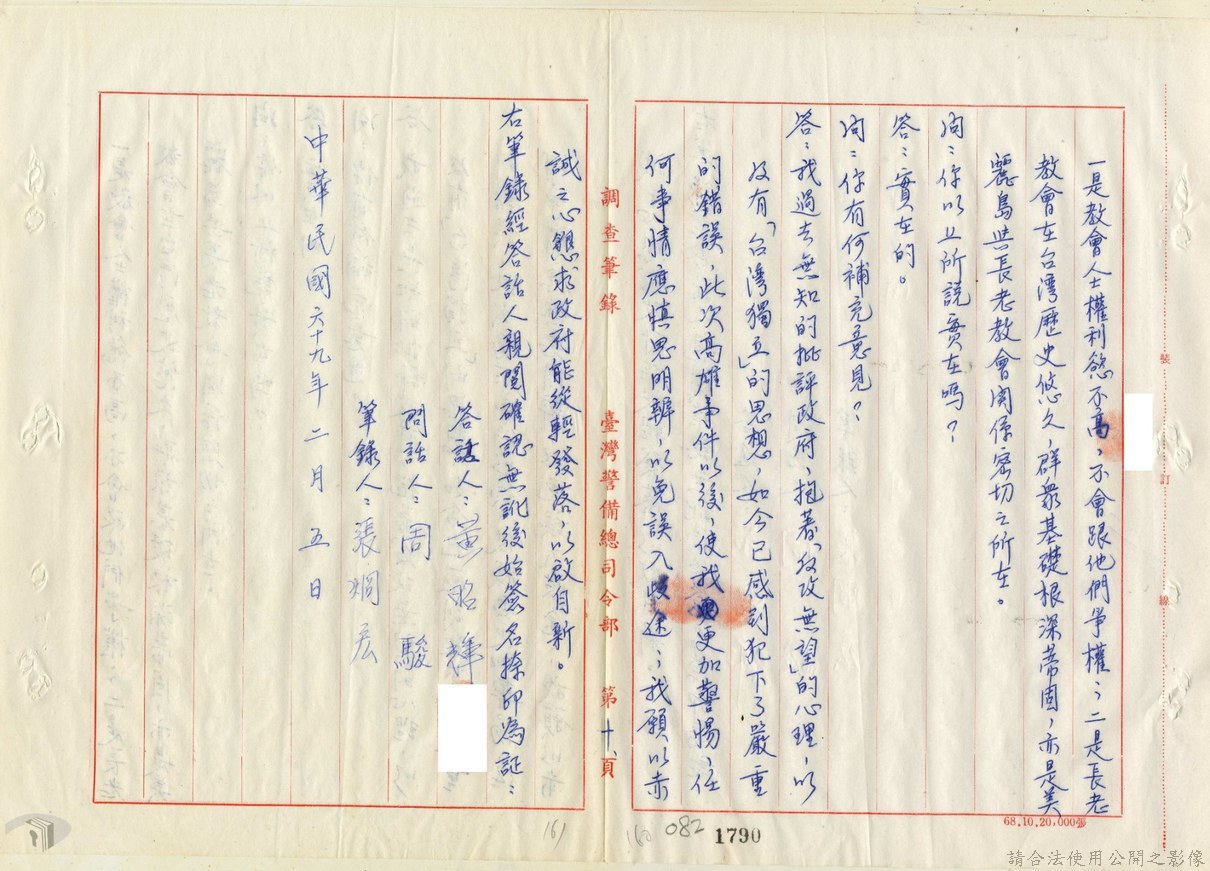 一是教會人士權利慾不高，不會跟他們爭權；二是長老
教會在台灣歷史悠久，群衆基礎根深蒂固，亦是美
麗島與長老教會関係密切之所在。
問：你以上所説實在嗎？
答：實在的。
問：你有何補充意見？
答：我過去無知的批評政府，抱著「改政無望」的心理，以
及有「台灣獨立」的思想，如今已感到犯下了嚴重
的錯誤，此次高雄事件以後，使我更加警惕，任
何事情應慎思明辨，以免誤入歧途，我願以赤
調查筆錄 臺灣警備總司令部 第十頁
誠之心懇求政府能從輕發落，以啟自新。
右筆錄經答話人親閱確認無訛後始簽名捺印為証：
答話人：黄昭輝
問話人：周 駿
筆錄人：張炯宏
中華民國六十九年二月五日
裝 訂 線
68.10.20,000張
1790
082
160
161
請合法使用公開之影像